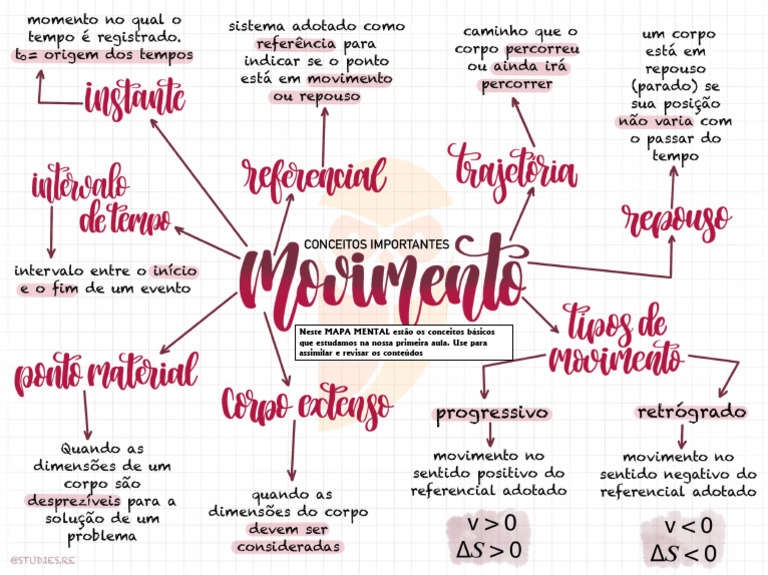 momento no qual o
tempo é registrado.
t₀= origem dos tempos
instante
sistema adotado como
referência para
indicar se o ponto
está em movimento
ou repouso
referencial
caminho que o
corpo percorreu
ou ainda irá
percorrer
trajetória
um corpo
está em
repouso
(parado) se
sua posição
não varia com
o passar do
tempo
repouso
intervalo
de tempo
intervalo entre o início
e o fim de um evento
CONCEITOS IMPORTANTES
Movimento
Neste MAPA MENTAL estão os conceitos básicos
que estudamos na nossa primeira aula. Use para
assimilar e revisar os conteúdos
ponto material
Quando as
dimensões de um
corpo são
desprezíveis para a
solução de um
problema
corpo extenso
quando as
dimensões do corpo
devem ser
consideradas
tipos de
movimento
progressivo
movimento no
sentido positivo do
referencial adotado
v > 0
ΔS > 0
retrógrado
movimento no
sentido negativo do
referencial adotado
v < 0
ΔS < 0
@STUDIES.RE